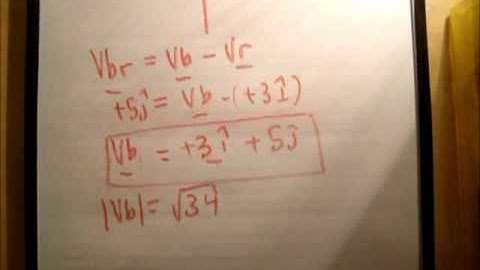 Vbr = Vb - Vr
+5ĵ = Vb - (+3î)
Vb = +3î + 5ĵ
|Vb| = √34